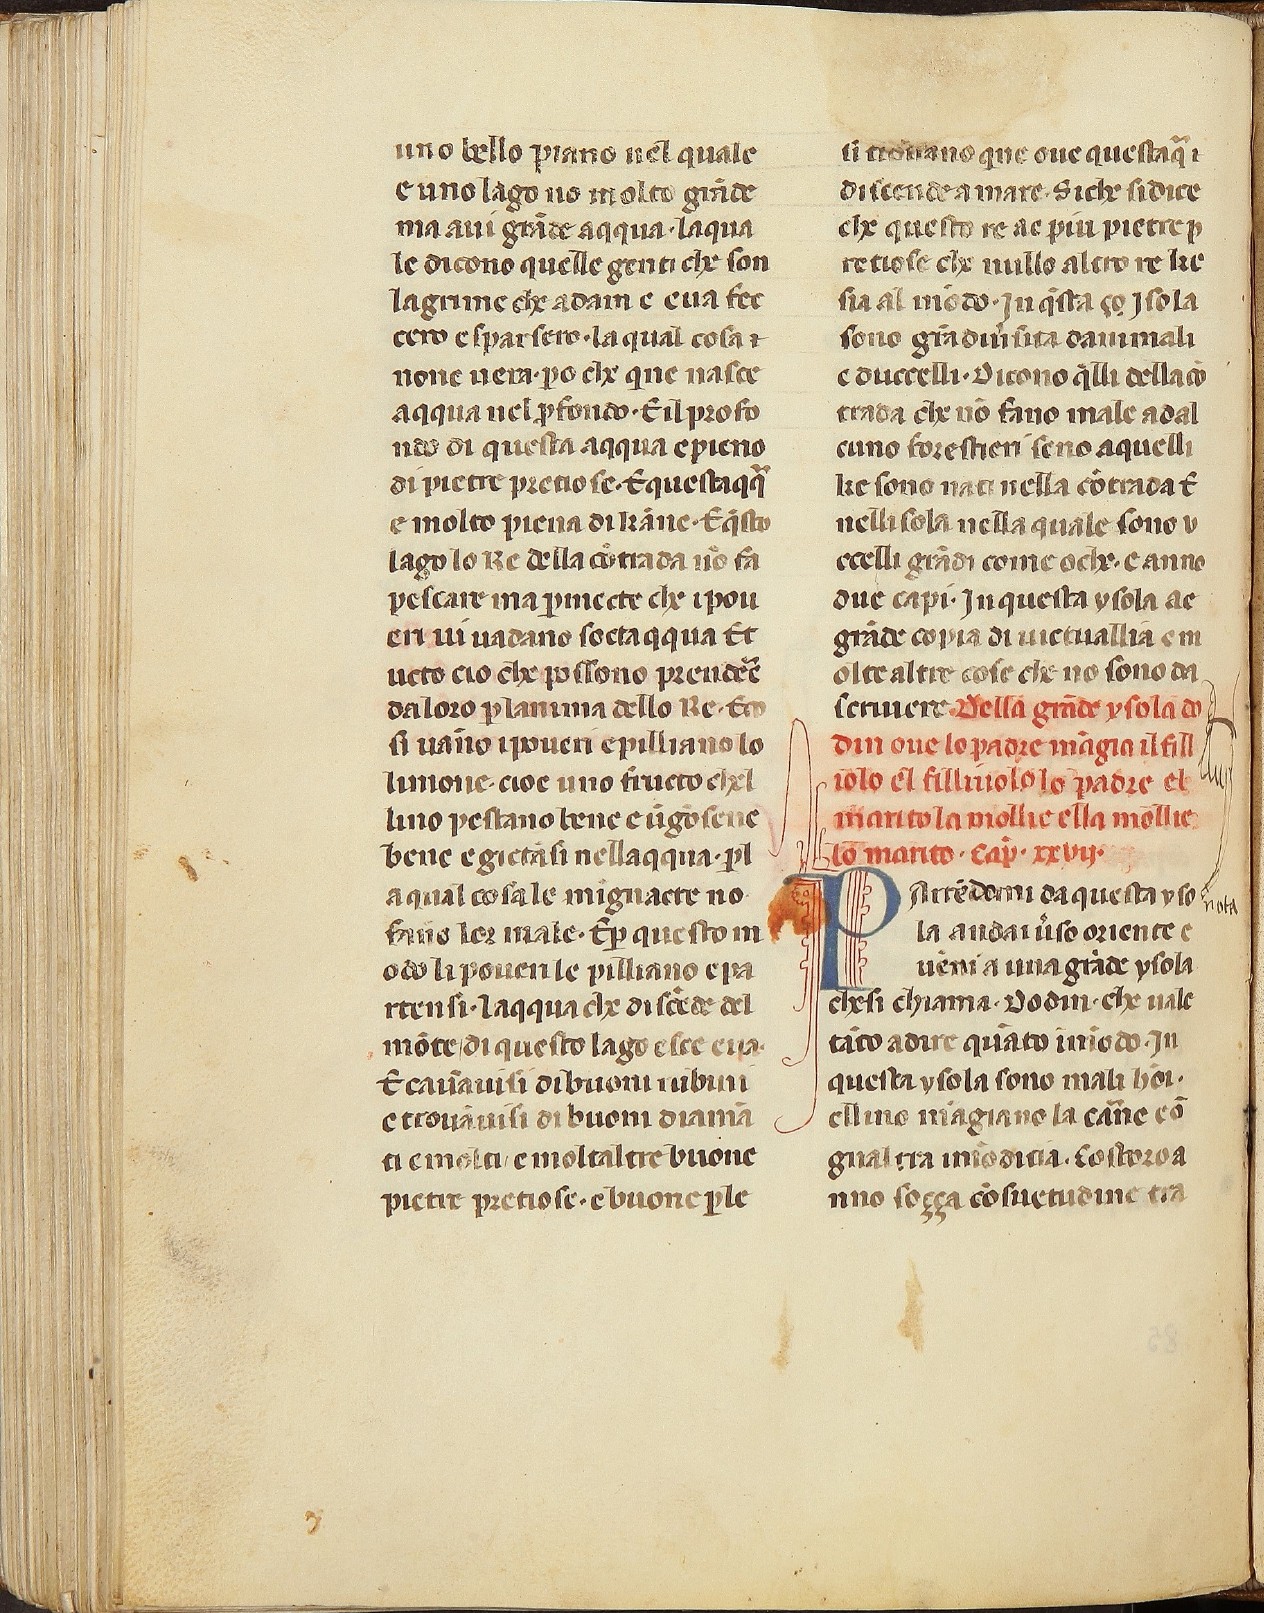 uno bello piano nel quale
e uno lago no molto grāde
ma aui grāde aqqua· laqua
le dicono quelle genti che son
lagrime che adam e eua fec
cero e sparsero· la qual cosa ɿ
none uera· po che qine nasce
aqqua nel p̱fondo· E il profo
ndo di questa aqqua e pieno
di pietre pretiose· E questaqq̄
e molto piena di kāne· E q̄sto
lago lo Re della cōtrada nō fa
pescare ma pmecte che i pou
eri ui uadano soctaqqua Et
ucto cio che possono prendēe
da loro p lanima dello Re· Eco
si uan̄o i poueri e pilliano lo
limone· cioe uno fructo chel
lino pestano bene e ūgōsene
bene e gietāsi nellaqqua· pl
a qual cosa le mignacte no
fāno lor male· E p̱ questo m
odo li poueri le pilliano e pa
rtensi· laqqua che discēde del
mōte di questo lago esce eua·
E cauāuisi di buoni rubini
e trouāuisi di buoni diamā
ti e molti e moltaltre buone
pietre pretiose· e buone ple
si trouano que oue questaq̄ ɿ
discende a mare· Siche si dice
che questo re ae piu pietre p
retiose che nullo altro re ke
sia al mōdo· In q̄sta ço Isola
sono grā diuisita danimali
e duccelli· Dicono q̄lli della cō
trada che nō fano male ad al
cuno forestieri seno aquelli
ke sono nati nella cōtrada E
nellisola nella quale sono v
ccelli grādi come oche· e anno
due capi· In questa ysola ae
grāde copia di uictuallia e m
olte altre cose che no sono da
scriuere· Della grāde ysola do
din oue lo padre māgia il fill
iolo el filliuolo lo padre el
marito la mollie ella mollie
lo marito· Cap̄· xxvij·
PArtēdomi da questa yso
la andai ūso oriente e
uēni a una grāde ysola
che si chiama· Dodin· che uale
tāto a dire quāto īmōdo· In
questa ysola sono mali hōi·
elli ne māgiano la carne cō
gnaltra īmōditia· Costoro a
nno soçça cōsuetudine tra
nota